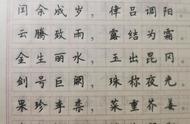 闰余成岁，律吕调阳。
云腾致雨，露结为霜。
金生丽水，玉出昆冈。
剑号巨阙，珠称夜光。
果珍李柰，菜重芥姜。